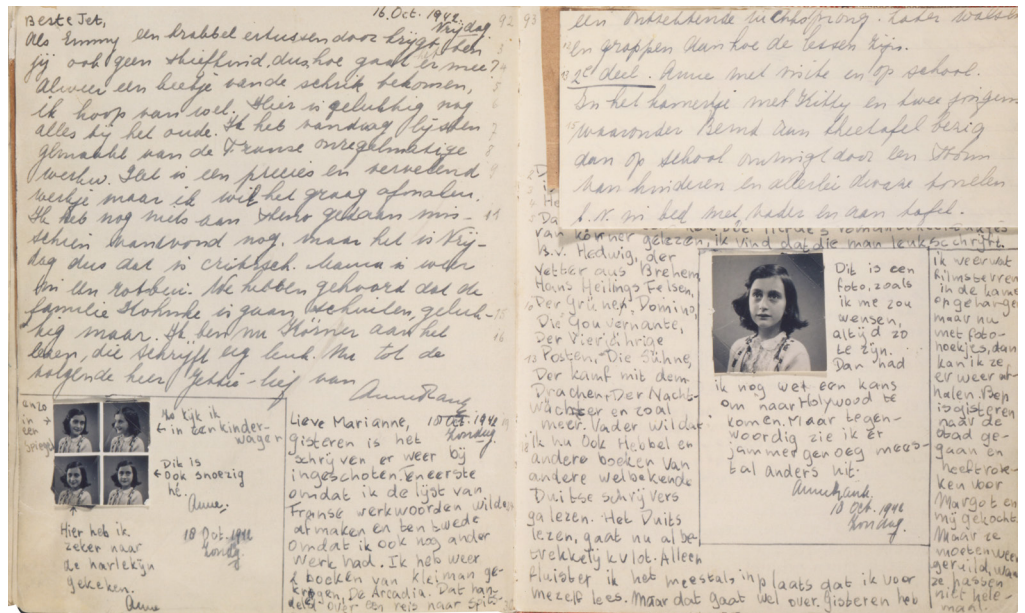 16 Oct. 1942
Vrijdag.
Beste Jet,
Als Emmy een krabbel ertussendoor krijgt, ben
jij ook geen stiefkind, dus, hoe gaat er mee?
Alweer een beetje van de schrik bekomen,
ik hoop van wel. Hier is gelukkig nog
alles bij het oude. Ik heb vandaag lijsten
gemaakt van de Franse onregelmatige
werkw. Het is een precies en vervelend
werkje maar ik wil het graag afmaken.
Ik heb nog niets aan steno gedaan mis-
schien vanavond nog. maar het is Vrij-
dag dus dat is critisch. Mama is weer
in een rotbui. We hebben gehoord dat de
familie is gaan schuilen, geluk-
kig maar. Ik ben nu Körner aan het
lezen, die schrijft erg leuk. Nu tot de
volgende keer Jettie-lief van
Anne Frank
92
anzo
in
een
spiegel
Zo kijk ik
in een kinder-
wagen
Dit is
ook snoezig
hè.
Anne.
18 Oct. 1942
Zondg.
Hier heb ik
zeker naar
de harlekijn
gekeken.
Anne
Lieve Marianne,
18 Oct. 1942
Zondag
gisteren is het
schrijven er weer bij
ingeschoten. Eneerste
omdat ik de lijst van
Franse werkwoorden wilde
afmaken en ten twede
omdat ik ook nog ander
werk had. Ik heb weer
2 boeken van kleiman ge-
kregen, De Arcadia. Dat han-
delt over een reis naar Spitz-
93
een ontzettende luchtsprong. Later walsen
en grappen aan hoe de lessen zijn.
2e deel. Anne met visite en op school.
In het kamertje met Kitty en twee jongens
waaronder Bernd aan theetafel bezig
dan op school omringd door een stoom
van kinderen en allerlei dwaze tonelen
b.v. in bed met vader en aan tafel.
van körner gelezen, ik vind dat die man leuk schrijft.
B.v. Hedwig, der
Vetter aus Brehem,
Hans Heilings Felsen,
Der Grüne, Domino,
Die Gouvernante,
Der Vierjährige
Posten, Die Sühne,
Der kamf mit dem
Drachen, Der Nacht-
wächter en zoal
meer. Vader wil dat
ik nu ook Hebbel en
andere boeken van
andere welbekende
Duitse schrijvers
ga lezen. Het Duits
lezen, gaat nu al be-
trekkelijk vlot. Alleen
fluister ik het meestal, inplaats dat ik voor
mezelf lees. Maar dat gaat wel over, gisteren heb
Dit is een
foto, zoals
ik me zou
wensen,
altijd zo
te zijn.
Dan had
ik nog wel een kans
om naar Holywood te
komen. Maar tegen-
woordig zie ik er
jammer genoeg mees-
tal anders uit.
Anne Frank.
18 Oct. 1942
Zondag.
ik weer wat
filmsterren
in de kamer
opgehangen
maar nu
met foto-
hoekjes, dan
kan ik ze
er weer af
halen. Bep
is gisteren
naar de
stad ge-
gaan en
heeft rok-
ken voor
Margot en
mij gekocht.
Maar ze
moeten weer
geruild, want
ze passen
niet hele-
maal.